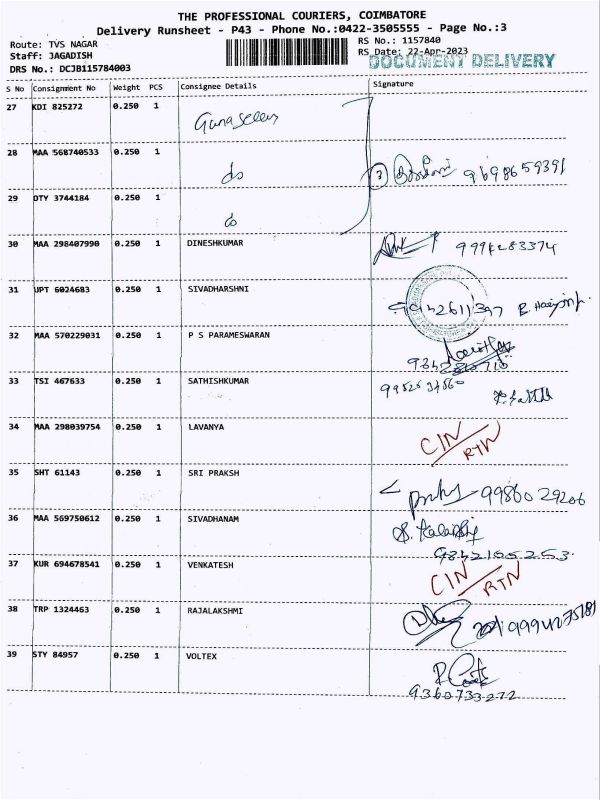 THE PROFESSIONAL COURIERS, COIMBATORE
Delivery Runsheet - P43 - Phone No.:0422-3505555 - Page No.:3
Route: TVS NAGAR
Staff: JAGADISH
DRS No.: DCJB115784003
RS No.: 1157840
RS Date: 22-Apr-2023
DOCUMENT DELIVERY
S No Consignment No Weight PCS Consignee Details Signature
27 KDI 825272 0.250 1
28 MAA 568740533 0.250 1 do 3 9698659391
29 DTY 3744184 0.250 1 do
30 MAA 298407990 0.250 1 DINESHKUMAR 9994283374
31 UPT 6024683 0.250 1 SIVADHARSHNI
32 MAA 570229031 0.250 1 P S PARAMESWARAN
33 TSI 467633 0.250 1 SATHISHKUMAR
34 MAA 298039754 0.250 1 LAVANYA CIN/RTN
35 SHT 61143 0.250 1 SRI PRAKSH 9986029206
36 MAA 569750612 0.250 1 SIVADHANAM 9842155253
37 KUR 694678541 0.250 1 VENKATESH CIN/RTN
38 TRP 1324463 0.250 1 RAJALAKSHMI
39 STY 84957 0.250 1 VOLTEX
9360733272